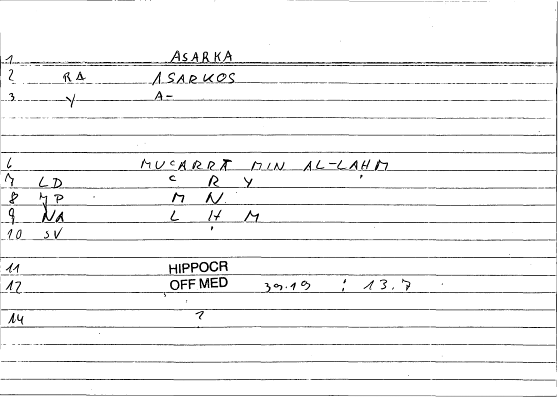 1 ASARKA
2 RA ASARKOS
3 Y A-
6 MUCARRĀ MIN AL-LAHM
7 LD C R Y
8 MP M N
9 NA L H M
10 SV
11 HIPPOCR
12 OFF MED 39.19 : 13.7
14 ?